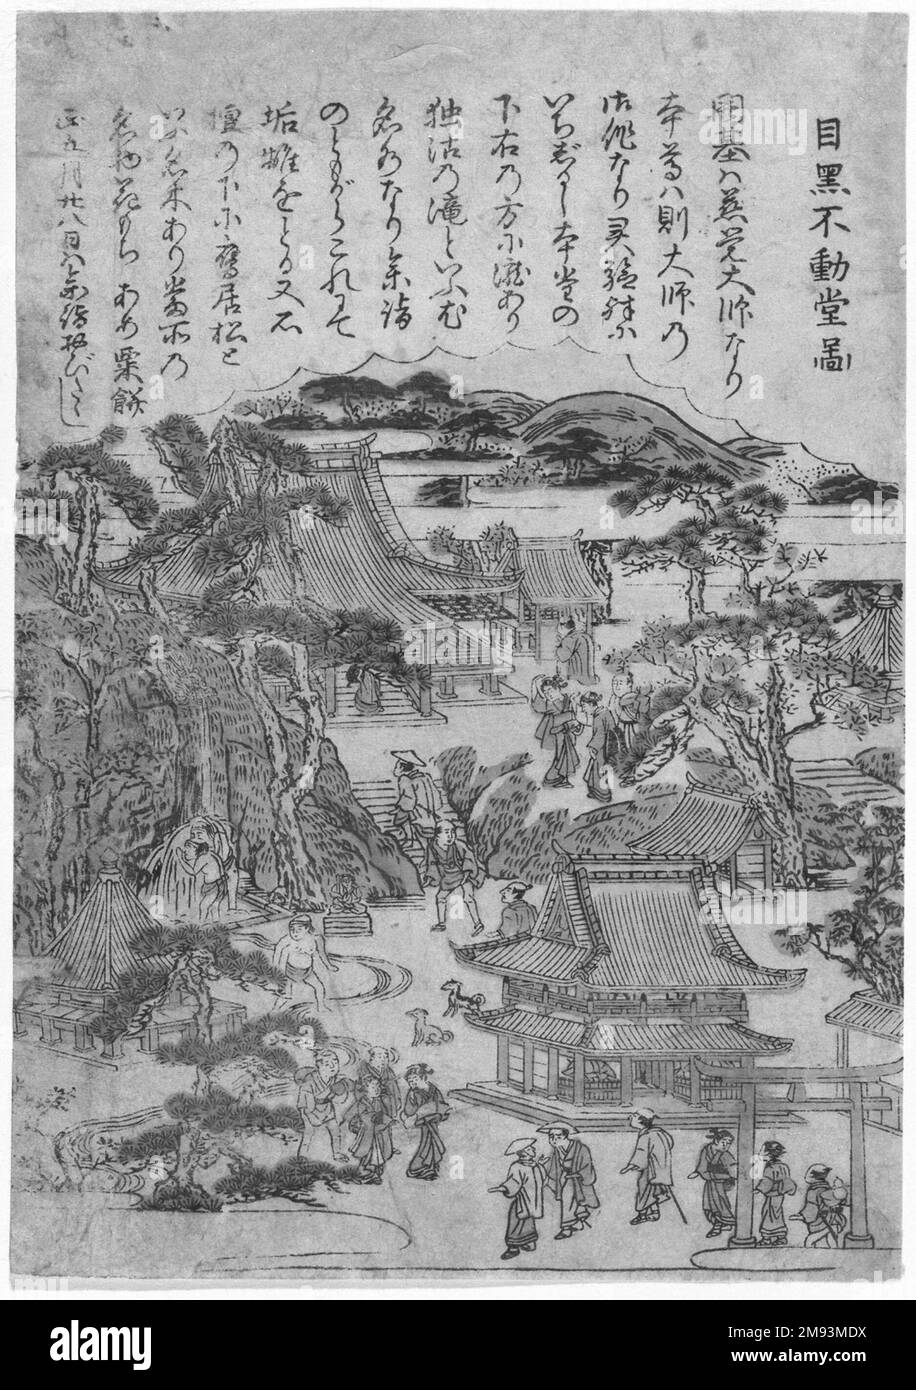 目黒不動堂啚
開基ハ慈覚大師なり
本尊ハ則大師乃
御作なり灵験殊に
いちじるし本堂の
下右の方に瀧あり
独沽乃滝といふ
名水なり参詣
のともがらこれにて
垢離をとる又石
壇の下に鷹居松と
いふ名木あり当所乃
名物 もち あめ 粟餅
正五月廿八日ハ参詣
alamy
alamy
Image ID: 2M93MDX
www.alamy.com